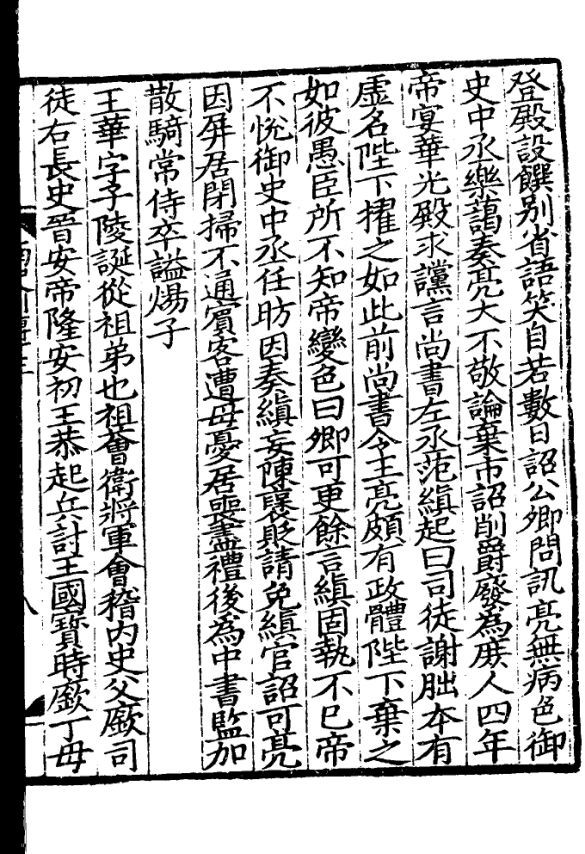 登殿設饌别省語笑自若數日詔公卿問訊亮無病色御
史中丞樂藹奏亮大不敬論棄市詔削爵廢為庶人四年
帝宴華光殿求讜言尚書左丞范縝起曰司徒謝朏本有
虚名陛下擢之如此前尚書令王亮頗有政體陛下棄之
如彼愚臣所不知帝變色曰卿可更餘言縝固執不已帝
不悅御史中丞任昉因奏縝妄陳襃貶請免縝官詔可亮
因屏居閉掃不通賓客遭母憂居喪盡禮後為中書監加
散騎常侍卒謚煬子
王華字子陵誕從祖弟也祖薈衛將軍會稽内史父廞司
徒右長史晉安帝隆安初王恭起兵討王國寳時廞丁母